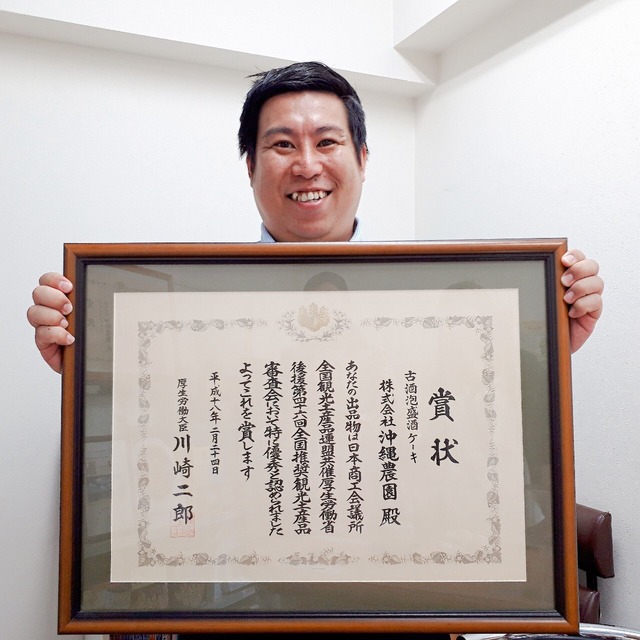 賞状
古酒泡盛酒ケーキ
株式会社沖縄農園 殿
あなたの出品物は日本商工会議所
全国観光土産品連盟共催厚生労働省
後援第四十六回全国推奨観光土産品
審査会において特に優秀と認められました
よってこれを賞します
平成十八年二月二十四日
厚生労働大臣 川崎二郎